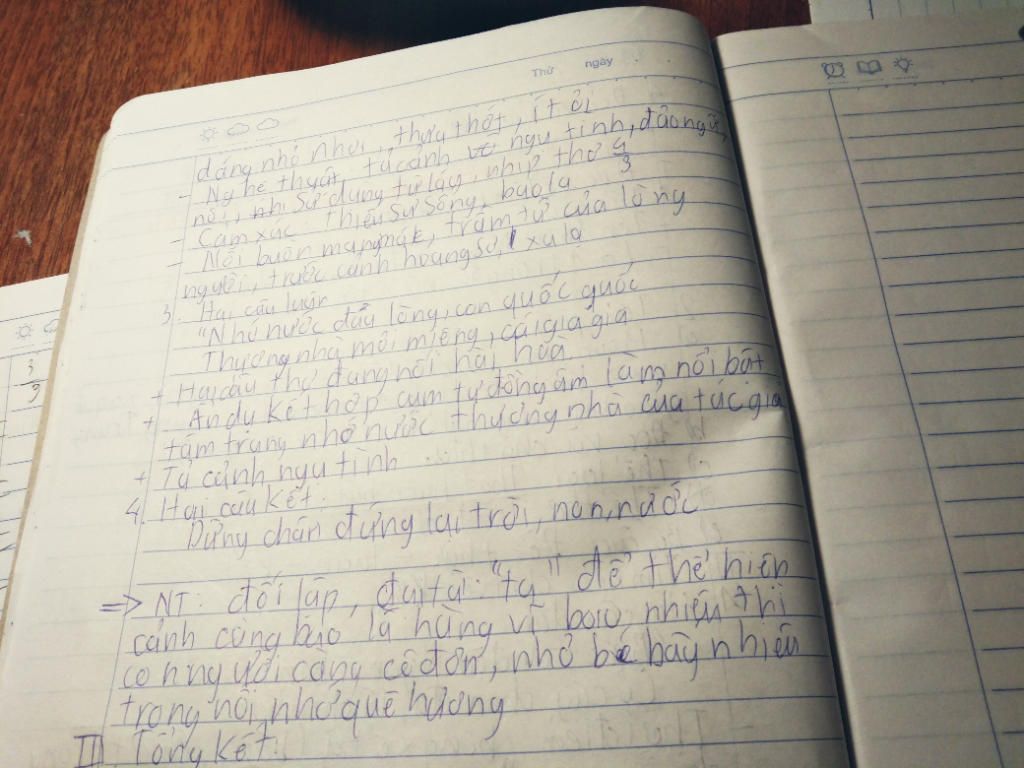 Thứ ngày
dáng nhỏ nhoi, thưa thớt, ít ỏi
- Nghệ thuật tả cảnh ngụ tình, đảo ngữ,
nối, nhi Sử dụng từ láy, nhịp thơ 4
3
- Cảm xúc thiếu sự sống, bao la
- Nỗi buồn mang mác, trầm tư của lòng
người, trước cảnh hoang sơ, xa lạ
3. Hai câu luận
"Nhớ nước đau lòng, con quốc quốc
Thương nhà mỏi miệng, cái gia gia
+ Hai câu thơ đang nói hài hoà
+ kết hợp cụm từ đồng âm làm nổi bật
tâm trạng nhớ nước thương nhà của tác giả
+ Tả cảnh ngụ tình
4. Hai câu kết:
Dừng chân đứng lại trời, non, nước
=> NT: đối lập, đại từ: "ta" để thể hiện
cảnh càng bao la hùng vĩ bao nhiêu thì
con người càng cô đơn, nhỏ bé bấy nhiêu
trong nỗi nhớ quê hương
III Tổng kết:
3
9